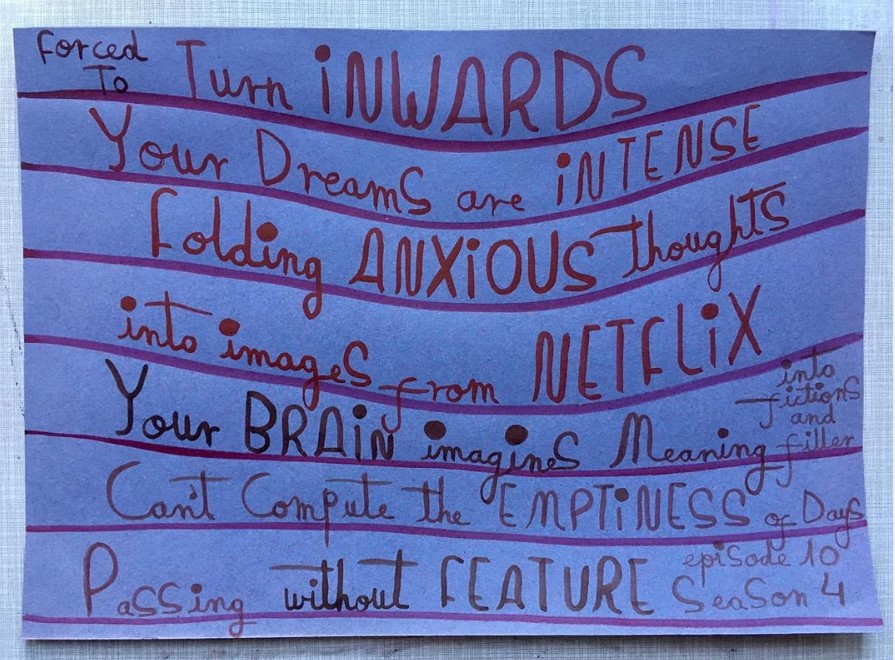 Forced To Turn iNWARDS
Your DreamS are iNTENSE
Folding ANXiOUS thoughts
into imageS from NETFLiX
Your BRAiN imagineS Meaning into fictionS and filler
Can't Compute the EMPTiNESS of Days
PaSSing without FEATURE episode 10 SeaSon 4